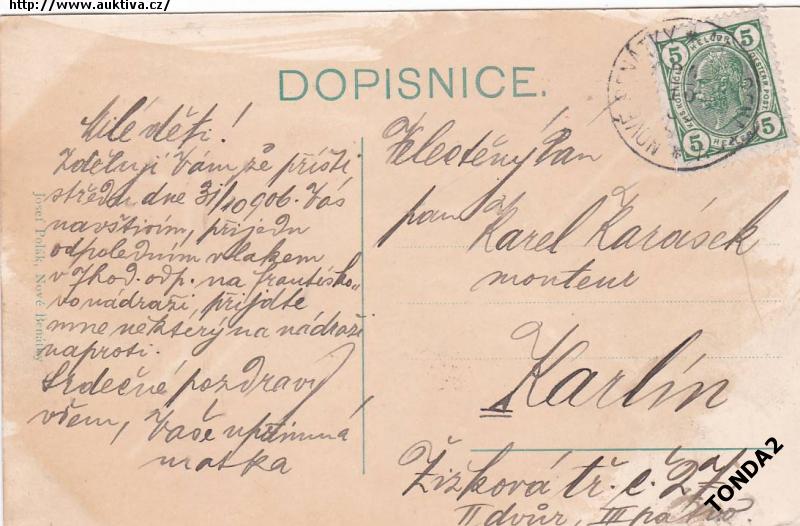 http://www.auktiva.cz/
DOPISNICE.
Milé děti!
Zděluji Vám že příští
středu dne 31/10 906. Vás
navštivím, přijedu
odpoledním vlakem
v 7 hod. odp. na františko-
vo nádraží, přijdte
mne některý na nádraží
naproti.
Srdečné pozdravy
všem, Vaše upřimná
matka
Josef Polák, Nové Benátky
Velectěný Pan
pan Karel Karásek
monteur
Karlín
Žižková tř. č. 27
II dvůr, III patro.
NOVÉ BENÁTKY
5
5
5
5
TONDA2